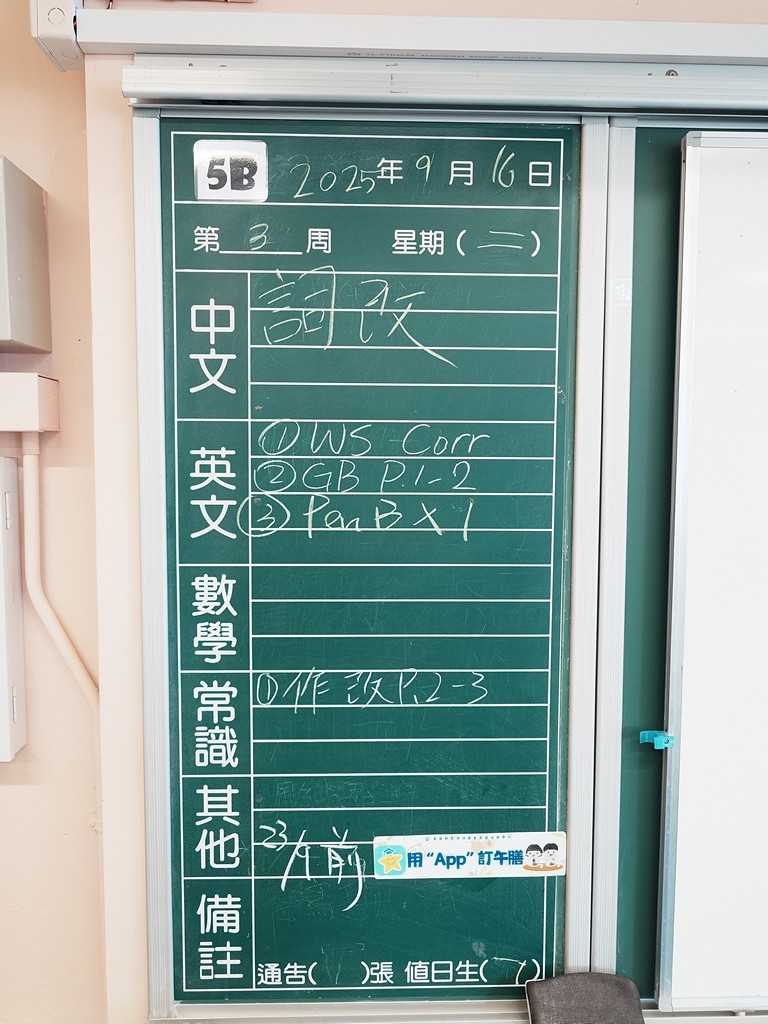 5B 2025年9月16日
第3周 星期(二)
中文 詞改
英文 ①WS Corr
②GB P.1-2
③Pen B X 1
數學
常識 ①作改P.2-3
其他
23/9前 用“App”訂午膳
備註
通告( )張 值日生(7)